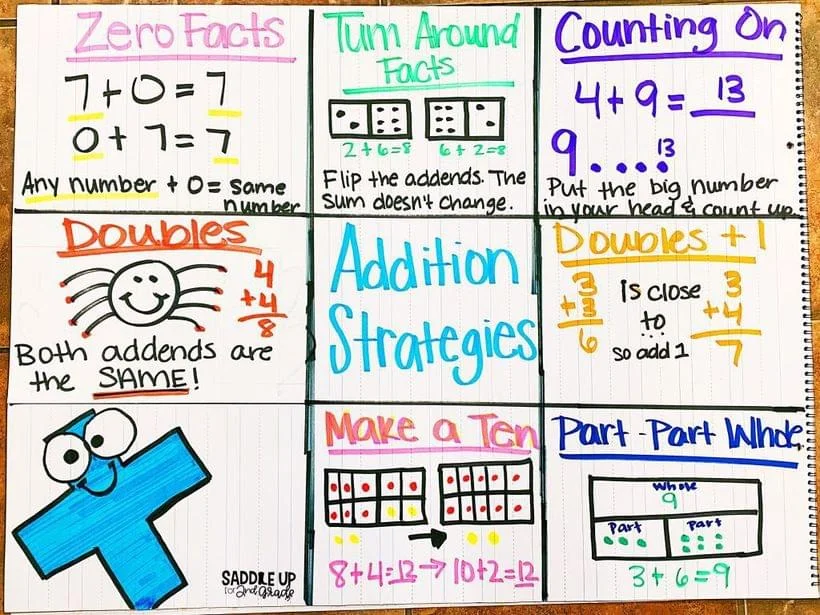 Zero Facts
7+0=7
0+7=7
Any number + 0= same
number
Turn Around
Facts
2+6=8
6+2=8
Flip the addends. The
sum doesn't change.
Counting On
4+9= 13
9....13
Put the big number
in your head & count up.
Doubles
4
+4
8
Both addends are
the SAME!
Addition
Strategies
Doubles +1
3
+3
6
is close
to...
so add 1
3
+4
7
SADDLE UP
for 2nd Grade
Make a Ten
8+4=12→10+2=12
Part-Part Whole
Whole
9
Part
Part
3+6=9